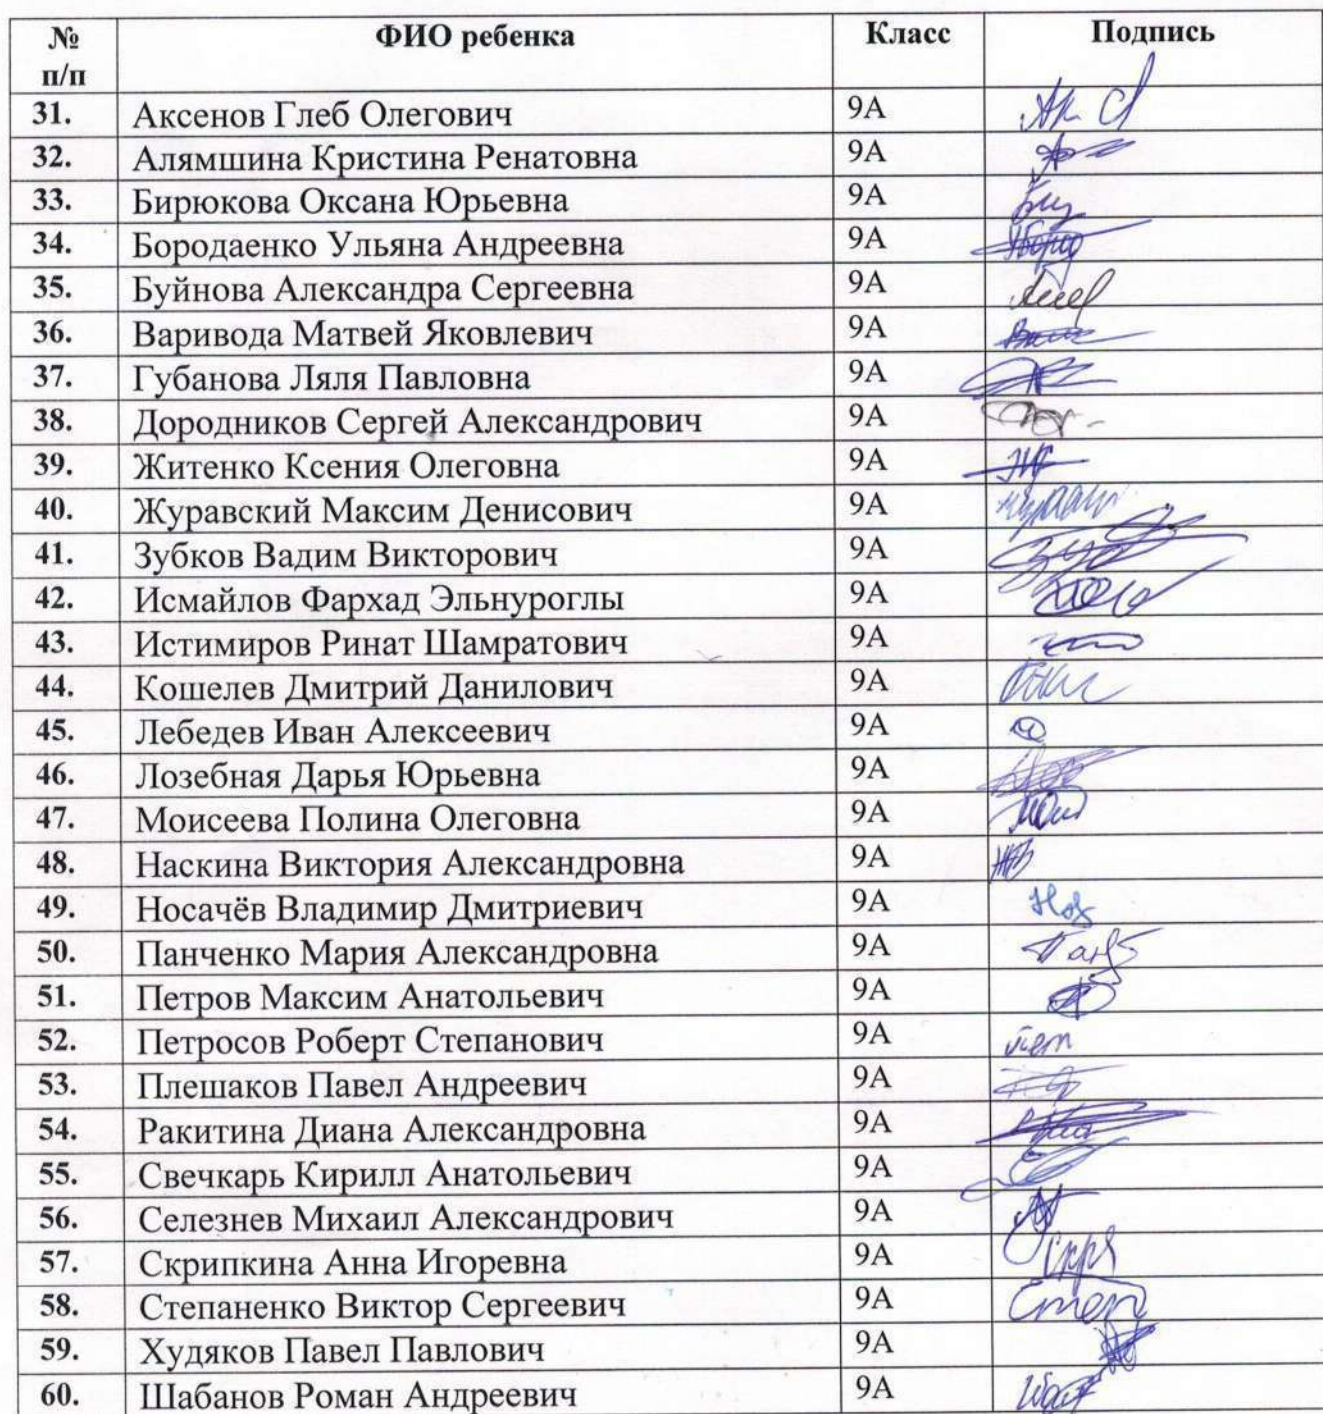 № п/п ФИО ребенка Класс Подпись
31. Аксенов Глеб Олегович 9А
32. Алямшина Кристина Ренатовна 9А
33. Бирюкова Оксана Юрьевна 9А
34. Бородаенко Ульяна Андреевна 9А
35. Буйнова Александра Сергеевна 9А
36. Варивода Матвей Яковлевич 9А
37. Губанова Ляля Павловна 9А
38. Дородников Сергей Александрович 9А
39. Житенко Ксения Олеговна 9А
40. Журавский Максим Денисович 9А
41. Зубков Вадим Викторович 9А
42. Исмайлов Фархад Эльнуроглы 9А
43. Истимиров Ринат Шамратович 9А
44. Кошелев Дмитрий Данилович 9А
45. Лебедев Иван Алексеевич 9А
46. Лозебная Дарья Юрьевна 9А
47. Моисеева Полина Олеговна 9А
48. Наскина Виктория Александровна 9А
49. Носачёв Владимир Дмитриевич 9А
50. Панченко Мария Александровна 9А
51. Петров Максим Анатольевич 9А
52. Петросов Роберт Степанович 9А
53. Плешаков Павел Андреевич 9А
54. Ракитина Диана Александровна 9А
55. Свечкарь Кирилл Анатольевич 9А
56. Селезнев Михаил Александрович 9А
57. Скрипкина Анна Игоревна 9А
58. Степаненко Виктор Сергеевич 9А
59. Худяков Павел Павлович 9А
60. Шабанов Роман Андреевич 9А